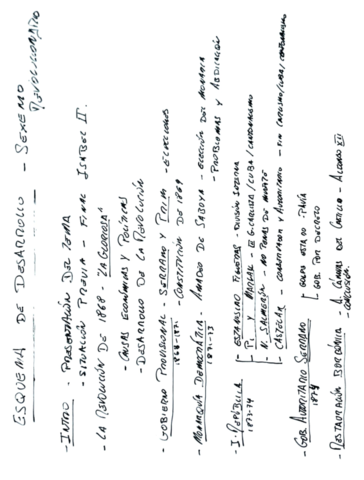 ESQUEMA DE DESARROLLO - SEXENIO
REVOLUCIONARIO
- INTRO - PRESENTACIÓN DEL TEMA
- SITUACIÓN PREVIA - FINAL ISABEL II.
- LA REVOLUCIÓN DE 1868 - "LA GLORIOSA"
- CAUSAS ECONÓMICAS Y POLÍTICAS
- DESARROLLO DE LA REVOLUCIÓN
- GOBIERNO PROVISIONAL - SERRANO Y PRIM - ELECCIONES
1868-1871 - CONSTITUCIÓN DE 1869
- MONARQUÍA DEMOCRÁTICA - AMADEO DE SABOYA - ELECCIÓN DEL MONARCA
1871-73 - PROBLEMAS Y ABDICACIÓN
- I REPÚBLICA - ESTANISLAO FIGUERAS - DIVISIÓN INTERNA
1873-74 - PI Y MARGALL - III G. CARLISTA / CUBA / CANTONALISMO
- N. SALMERÓN - NO PENAS DE MUERTE
- CASTELAR - CONSERVADOR Y AUTORITARIO - FIN CARLISMO/CUBA/CANTONALISMO
- GOB. AUTORITARIO SERRANO - GOLPE ESTADO PAVÍA
1874 - GOB. POR DECRETO
- RESTAURACIÓN BORBÓNICA - A. CÁNOVAS DEL CASTILLO - ALFONSO XII
- CONCLUSIÓN.